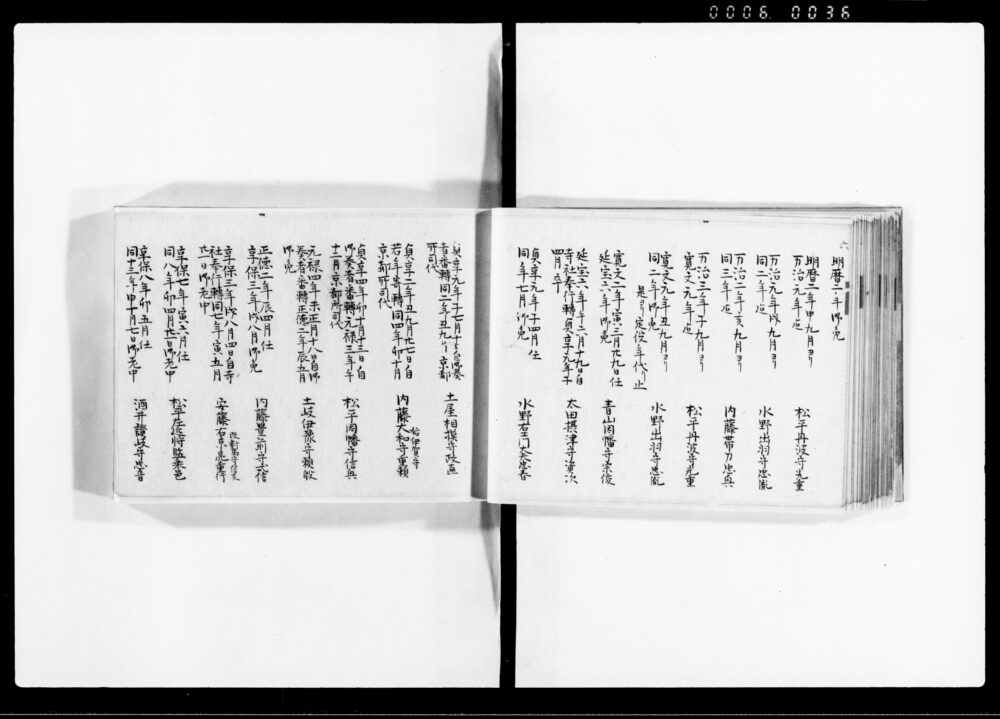 0006 0036
六
明暦二年御免
明暦二年申九月ヨリ
万治元年迄
松平丹波守光重
万治元年戌九月ヨリ
同二年迄
水野出羽守忠胤
万治二年亥九月ヨリ
同三年迄
内藤帯刀忠興
万治三年子九月ヨリ
寛文元年迄
松平丹波守光重
寛文元年丑九月ヨリ
同二年御免
是ヨリ定役年代り止
水野出羽守忠胤
寛文二年寅三月廿九日仕
延宝六年御免
青山因幡守宗俊
延宝六年午六月十九日自
寺社奉行轉貞享元年子
四月卒
太田摂津守資次
貞享元年子四月仕
同年七月御免
水野右衛門大夫忠春
貞享元年子七月十日自御奏
者番轉同二年丑九月京都
所司代
土屋相模守政直
貞享二年丑九月廿七日自
若年寄轉同四年卯十月
京都所司代
始伊賀守
内藤大和守重頼
貞享四年卯十月十三日自
御奏者番轉元禄三年午
十二月京都所司代
松平因幡守信興
元禄四年未正月十八日自御
奏者番轉正徳二年辰五月
御免
土岐伊豫守頼殷
正徳二年辰四月仕
享保三年戌八月御免
内藤豊前守弌信
享保三年戌八月四日自寺
社奉行轉同七年寅五月
廿一日御老中
改対馬守信友
安藤右京亮重行
享保七年寅六月仕
同八年卯四月廿一日御老中
松平左近将監乗邑
享保八年卯五月仕
同十三年申十月七日御老中
酒井讃岐守忠音